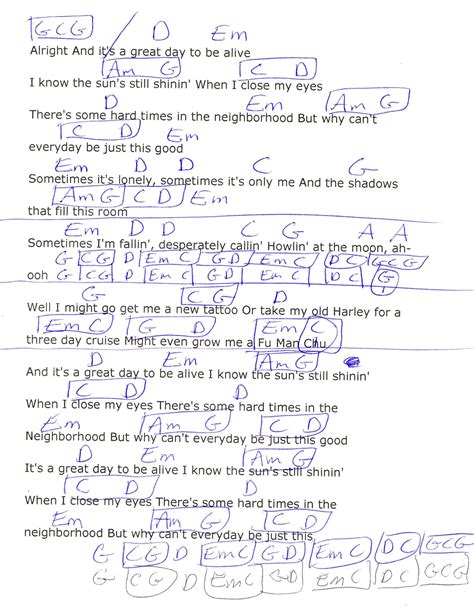 GCG D Em
Alright And it's a great day to be alive
Am G C D
I know the sun's still shinin' When I close my eyes
D Em Am G
There's some hard times in the neighborhood But why can't
C D
everyday be just this good
Em D D C G
Sometimes it's lonely, sometimes it's only me And the shadows
Am G C D Em
that fill this room
Em D D C G A A
Sometimes I'm fallin', desperately callin' Howlin' at the moon, ah-
G CG D Em C G D Em C D C G C G
ooh G CG D Em C G D Em C D C G
G C G D
Well I might go get me a new tattoo Or take my old Harley for a
Em C G D Em C
three day cruise Might even grow me a Fu Man Chu
D Em Am G
And it's a great day to be alive I know the sun's still shinin'
C D D
When I close my eyes There's some hard times in the
Em Am G C D
Neighborhood But why can't everyday be just this good
D Em Am G
It's a great day to be alive I know the sun's still shinin'
C D D
When I close my eyes There's some hard times in the
Em Am G C D
neighborhood But why can't everyday be just this
G CG D Em C G D Em C D C GCG
G CG D Em C G D Em C D C GCG